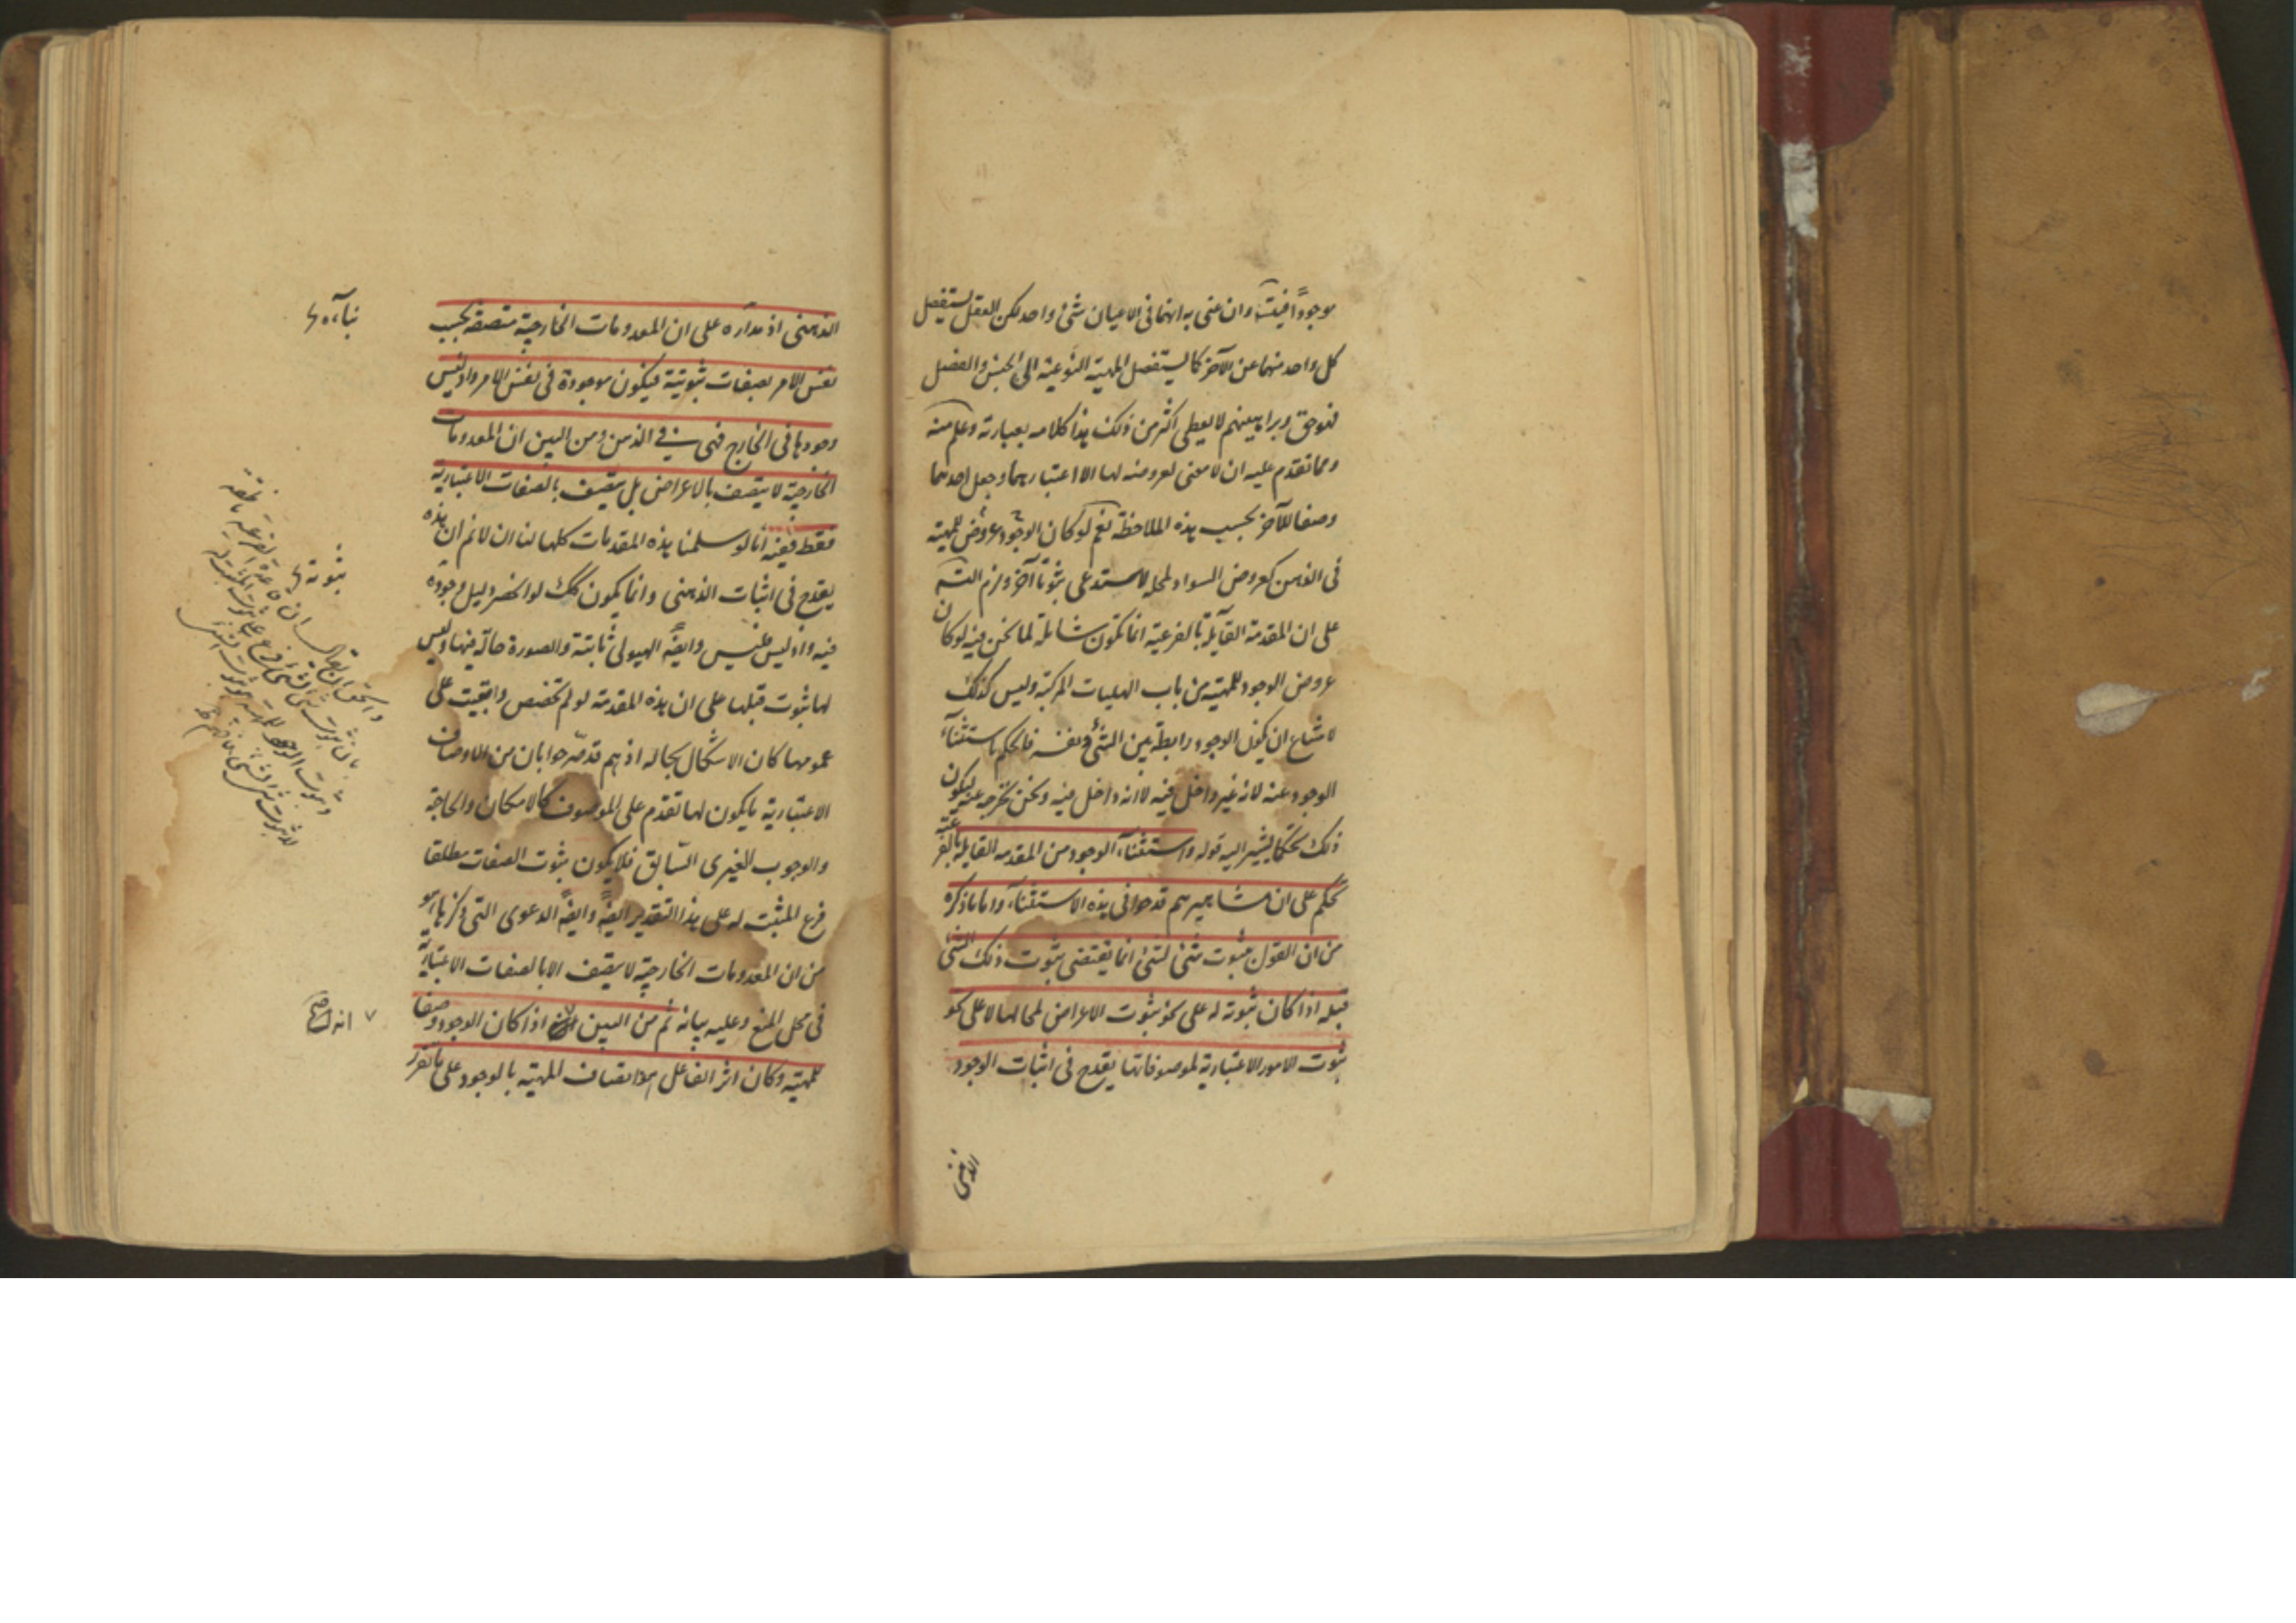 موجوداً فيتسـ وان عنى به انهما فى الاعيان شئ واحد لكن العقل يستفصل
كل واحد منهما عن الآخر كما يستفصل المهية النوعية الى الجنس والفصل
فهو حق وبراهينهم لا يعطى اكثر من ذلك هذا كلامه بعبارته وعلم منه
ومما تقدم عليه ان لا معنى لعروضه لها الا اعتبارهما وجعل احدهما
وصفا للآخر بحسب هذه الملاحظة نعم لو كان الوجود عروض للمهية
فى الذهن كعروض السواد لمحله لاستدعى ثبوتا آخر ولزم التسـ
على ان المقدمة القايلة بالفرعية انما تكون شاملة لما نحن فيه لو كان
عروض الوجود للمهية من باب الهليات المركبة وليس كذلك
لامتناع ان يكون الوجود رابطة بين الشئ ونفسه فالحكم باستثناء
الوجود عنه لانه غير داخل فيه لا انه داخل فيه ونحن نخرجه عنه ليكون
ذلك تحكما يشير اليه قوله واستثناء الوجود من المقدمه القايلة بالفرعية
تحكم على ان مشاهيرهم قدحوا فى هذه الاستثناء واما ما ذكره
من ان القول بثبوت شئ لشئ انما يقتضى ثبوت ذلك الشئ
قبله اذا كان ثبوته له على نحو ثبوت الاعراض لمحالها لا على نحو
ثبوت الامور الاعتبارية لموصوفاتها يقدح فى اثبات الوجود
الذهنى
الذهنى اذ مداره على ان المعدومات الخارجية متصفة بحسب
نفس الامر بصفات ثبوتية فيكون موجودة فى نفس الامر واذ ليس
وجودها فى الخارج فهى فى الذهن ومن البين ان المعدومات
الخارجية لا يتصف بالاعراض بل يتصف بالصفات الاعتبارية
فقط ففيه انا لو سلمنا هذه المقدمات كلها لنا ان لا نم ان هذه
يقدح فى اثبات الذهنى وانما يكون كك لو انحصر دليل وجوده
فيه واذ ليس فليس وايضا الهيولى ثابتة والصورة حالة فيها وليس
لها ثبوت قبلها على ان هذه المقدمة لو لم تخصص وابقيت على
عمومها كان الاشكال بحاله اذ هم قد صرحوا بان من الاوصاف
الاعتبارية ما يكون لها تقدم على الموصوف كالامكان والحاجة
والوجوب الغيرى السابق فلا يكون ثبوت الصفات مطلقا
فرع المثبت له على هذا التقدير ايضا وايضا الدعوى التى ذكرها
من ان المعدومات الخارجية لا يتصف الا بالصفات الاعتبارية
فى محل المنع وعليه بيانه ثم من البين اذا كان الوجود وصفا
للمهية وكان اثر الفاعل هو اتصاف المهية بالوجود على ما تقرر
انه صح